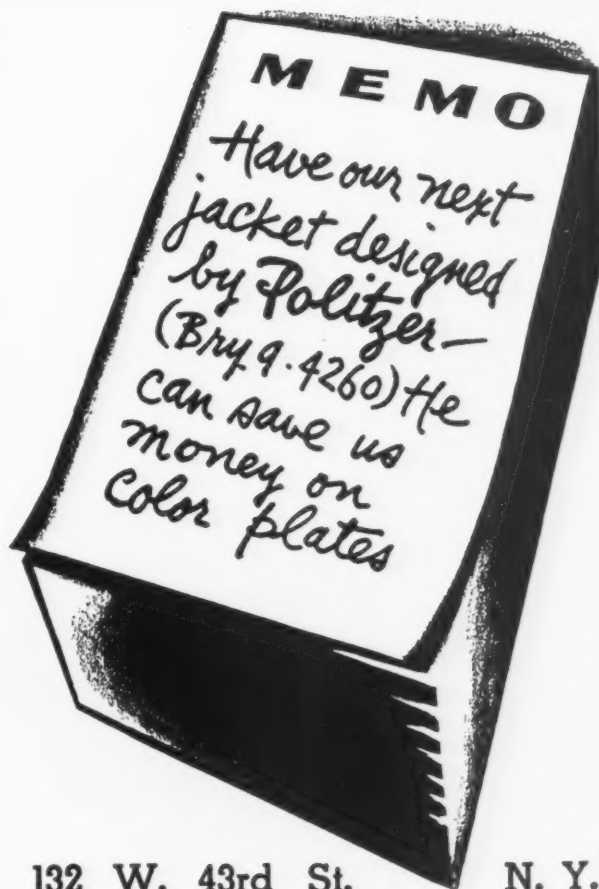 MEMO
Have our next
jacket designed
by Politzer—
(Bry. 9-4260) He
can save us
money on
color plates
132 W. 43rd St. N. Y.